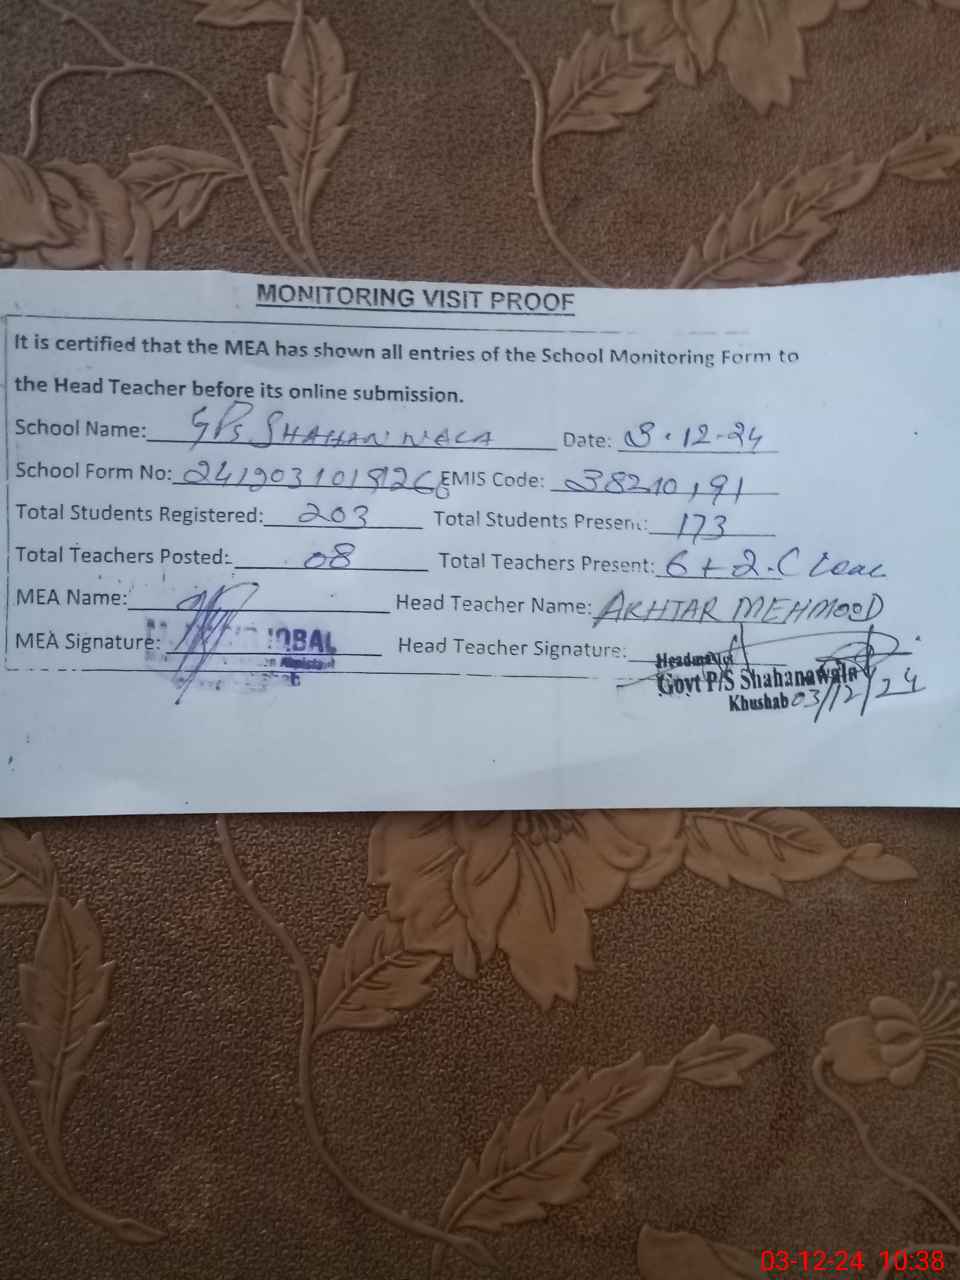 MONITORING VISIT PROOF
It is certified that the MEA has shown all entries of the School Monitoring Form to
the Head Teacher before its online submission.
School Name: GPS SHAHANWALA Date: 3.12-24
School Form No: EMIS Code: 38210191
Total Students Registered: 203 Total Students Present: 173
Total Teachers Posted: 08 Total Teachers Present: 6+2.C Leave
MEA Name: Head Teacher Name: AKHTAR MEHMOOD
MEA Signature: IQBAL Head Teacher Signature:
Headmaster
Govt P/S Shahanawala
Khushab 03/12/24
03-12-24 10:38